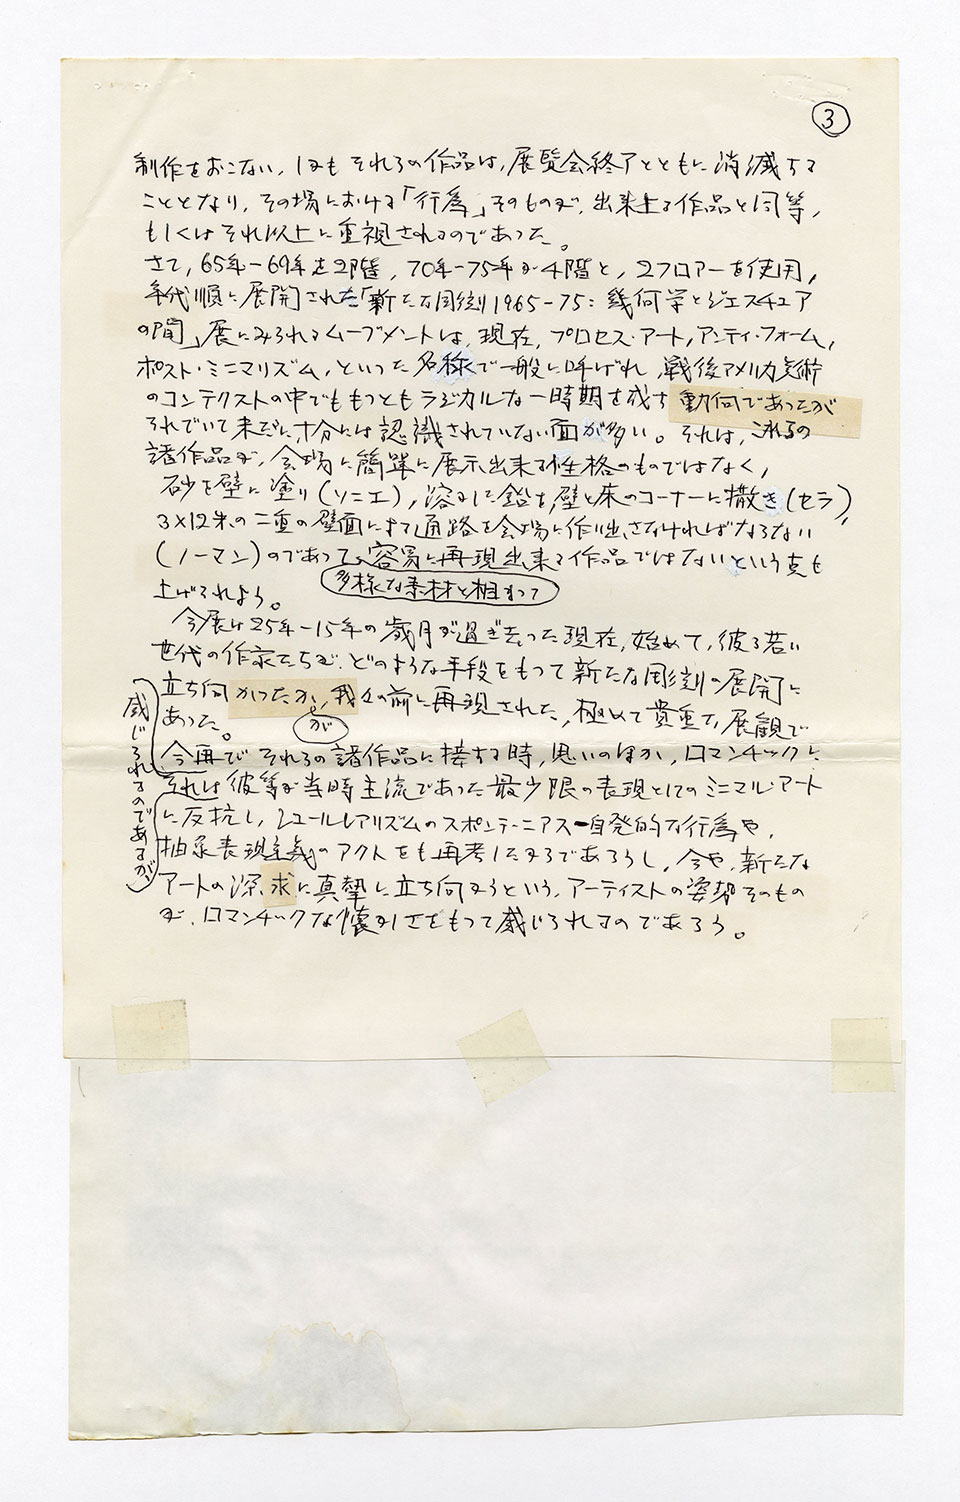 ③
制作をおこない，しかもそれらの作品は，展覧会終了とともに消滅する
こととなり，その場における「行為」そのものが，出来上る作品と同等，
もしくはそれ以上に重視されるのであった。
さて，65年-69年を2階，70年-75年が4階と，2フロアーを使用，
年代順に展開された「新たな彫刻1965-75：幾何学とジェスチュア
の間」展にみられるムーブメントは，現在，プロセス・アート，アンティ・フォーム，
ポスト・ミニマリズム，といった名称で一般に呼ばれ，戦後アメリカ美術
のコンテクストの中でももっともラジカルな一時期を成す動向であったが
それでいて未だに十分には認識されていない面が多い。それは，これらの
諸作品が，会場に簡単に展示出来る性格のものではなく，
砂を壁に塗り（ソニエ），溶かした鉛を，壁と床のコーナーに撒き（セラ），
3×12米の二重の壁面によって通路を会場に作り出さなければならない
（ノーマン）のであって、容易に再現出来る作品ではないという点も
多様な素材と相まって
上げられよう。
今展は25年-15年の歳月が過ぎ去った現在，始めて，彼ら若い
世代の作家たちが，どのような手段をもって新たな彫刻の展開に
立ち向かったか，我々の前に再現された，極めて貴重な展観で
あった。
が
今再びそれらの諸作品に接する時，思いのほか，ロマンチックに
感じられるのであるが，
それは彼等が当時主流であった最少限の表現としてのミニマル・アート
に反抗し，シュールレアリズムのスポンテーニアス－自発的な行為や，
抽象表現主義のアクトをも再考したするであろうし，今や，新たな
アートの深求に真摯に立ち向かうという，アーティストの姿勢そのもの
が，ロマンチックな懐かしさをもって感じられるのであろう。